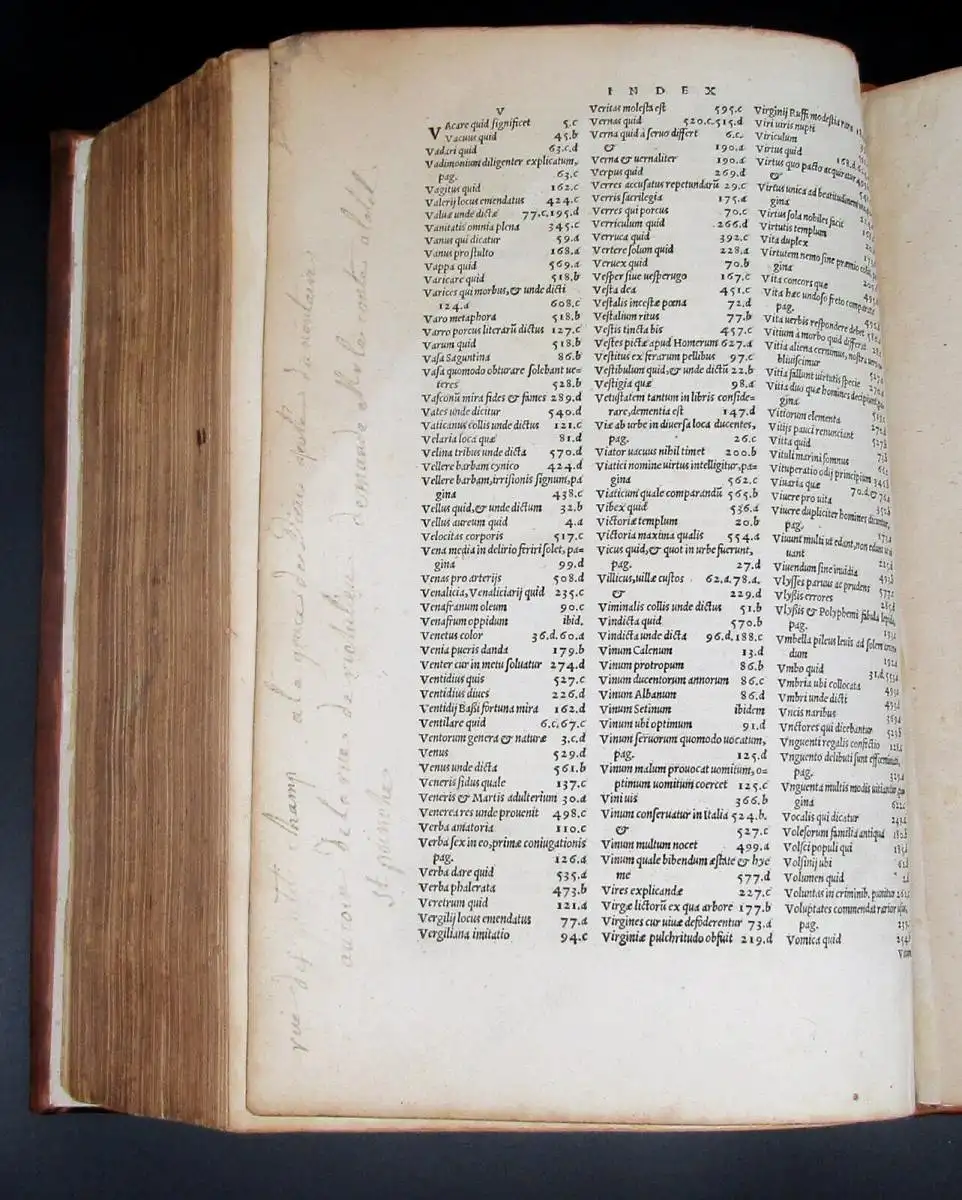 INDEX
V
VAcare quid significet 5.c
Vacuus quid 45.b
Vadari quid 63.c.d
Vadimonium diligenter explicatum,
pag. 63.c
Vagitus quid 162.c
Valerij locus emendatus 424.c
Valuæ unde dictæ 77.c.195.d
Vanitatis omnia plena 345.c
Vanus qui dicatur 59.a
Vanus pro stulto 168.a
Vappa quid 569.a
Varicare quid 518.b
Varices qui morbus, & unde dicti
124.a 608.c
Varo metaphora 518.b
Varro porcus literarū dictus 127.c
Varum quid 518.b
Vasa Saguntina 86.b
Vasa quomodo obturare solebant ue-
teres 528.b
Vasconū mira fides & fames 289.d
Vates unde dicitur 540.d
Vaticanus collis unde dictus 121.c
Velaria loca quæ 81.d
Velina tribus unde dicta 570.d
Vellere barbam cynico 424.d
Vellere barbam, irrisionis signum, pa
gina 438.c
Vellus quid, & unde dictum 32.b
Vellus aureum quid 4.a
Velocitas corporis 517.c
Vena media in delirio feriri solet, pa-
gina 99.d
Venas pro arterijs 508.d
Venalicia, Venaliciarij quid 235.c
Venafranum oleum 90.c
Venafrum oppidum ibid.
Venetus color 36.d.60.a
Venia pueris danda 179.b
Venter cur in metu soluatur 274.d
Ventidius quis 527.c
Ventidius diues 226.d
Ventidij Bassi fortuna mira 162.d
Ventilare quid 6.c.67.c
Ventorum genera & naturæ 3.c.d
Venus 529.d
Venus unde dicta 561.b
Veneris sidus quale 137.c
Veneris & Martis adulterium 30.a
Venerea res unde prouenit 498.c
Verba amatoria 110.c
Verba sex in eo, primæ coniugationis
pag. 126.a
Verba dare quid 535.a
Verba phalerata 473.b
Veretrum quid 121.a
Vergilij locus emendatus 77.a
Vergiliana imitatio 94.c
Veritas molesta est 595.c
Vernas quid 520.c.515.d
Verna quid à seruo differt 6.c.
& 190.a
Verna & uernaliter 190.a
Verpus quid 269.d
Verres accusatus repetundarū 29.c
Verris sacrilegia 175.a
Verres qui porcus 70.c
Verriculum quid 266.d
Verruca quid 392.c
Vertere solum quid 228.a
Veruex quid 70.b
Vesper siue uesperugo 167.c
Vesta dea 451.c
Vestalis incestæ pœna 72.d
Vestalium ritus 77.b
Vestis tincta bis 457.c
Vestes pictæ apud Homerum 627.a
Vestitus ex ferarum pellibus 97.c
Vestibulum quid, & unde dictū 22.b
Vestigia quæ 98.a
Vetustatem tantum in libris conside-
rare, dementia est 147.d
Viæ ab urbe in diuersa loca ducentes,
pag. 26.c
Viator uacuus nihil timet 200.b
Viatici nomine uirtus intelligitur, pa-
gina 562.c
Viaticum quale comparandū 565.b
Vibex quid 536.a
Victoriæ templum 20.b
Victoria maxima qualis 554.a
Vicus quid, & quot in urbe fuerunt,
pag. 27.d
Villicus, uillæ custos 62.d.78.a.
& 229.d
Viminalis collis unde dictus 51.b
Vindicta quid 570.b
Vindicta unde dicta 96.d.188.c
Vinum Calenum 13.d
Vinum protropum 86.b
Vinum ducentorum annorum 86.c
Vinum Albanum 86.d
Vinum Setinum ibidem
Vinum ubi optimum 91.d
Vinum seruorum quomodo uocatum,
pag. 125.d
Vinum malum prouocat uomitum, o-
ptimum uomitum coercet 125.c
Vini uis 366.b
Vinum conseruatur in Italia 524.b.
& 527.c
Vinum multum nocet 499.a
Vinum quale bibendum æstate & hye
me 577.d
Vires explicandæ 227.c
Virgæ lictorū ex qua arbore 177.b
Virgines cur uiuæ defoderentur 73.d
Virginiæ pulchritudo obfuit 219.d
Virginij Ruffi modestia rara
Viri uiris nupti
Viriculum
Virtus quid
Virtus quo pacto acquiratur
&
Virtus unica ad beatitudinem
gina
Virtus sola nobiles facit
Virtutis templum
Vita duplex
Virtutem nemo sine præmio
gina
Vita concors quæ
Vita hæc undoso freto comparata
pag.
Vita uerbis respondere debet
Vitium à morbo quid differat
Vitia aliena cernimus, nostra
bliuiscimur
Vitia fallunt uirtutis specie
Vitia duo quæ homines decipiunt
gina
Vitiorum elementa
Vitijs pauci renunciant
Vitta quid
Vituli marini somnus
Vituperatio odij principium
Viuaria quæ
Viuere pro uita
Viuere dupliciter homines dicuntur,
pag.
Viuunt multi ut edant, non edant ut ui
uant
Viuendum sine inuidia
Vlysses paruus ac prudens
Vlyssis errores
Vlyssis & Polyphemi fabula lepida,
pag.
Vmbella pileus leuis ad solem
dum
Vmbo quid
Vmbria ubi collocata
Vmbri unde dicti
Vncis naribus
Vnctores qui dicebantur
Vnguenti regalis confectio
Vnguento delibuti sunt effœminati,
pag.
Vnguenta multis modis uitiantur
gina
Vocalis qui dicatur
Volesorum familia antiqua
Volsci populi qui
Volsinij ubi
Volumen quid
Voluntas in criminib. punitur
Voluptates commendat rarior usus,
pag.
Vomica quid